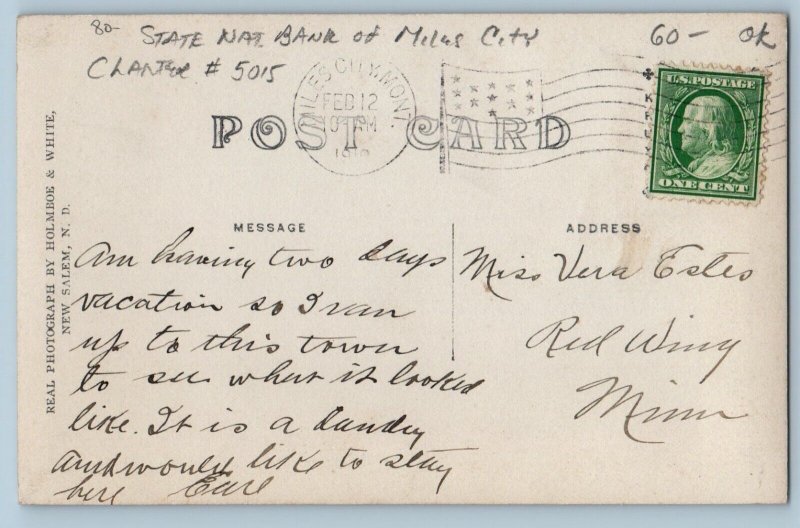 80-
STATE NAT BANK OF Miles City
60- OK
CHARTER # 5015
MILES CITY, MONT.
FEB 12
U.S. POSTAGE
ONE CENT
POST CARD
MESSAGE
ADDRESS
REAL PHOTOGRAPH BY HOLMBOE & WHITE,
NEW SALEM, N. D.
Am having two days
vacation so I ran
up to this town
to see what it looked
like. It is a dandy
and would like to stay
here Earl
Miss Vera Estes
Red Wing
Minn